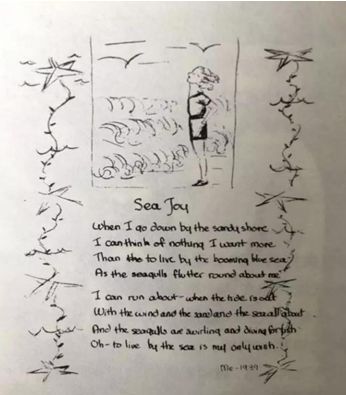 Sea Joy
When I go down by the sandy shore
I can think of nothing I want more
Than to live by the booming blue sea
As the seagulls flutter round about me
I can run about - when the tide is out
With the wind and the sand and the sea all about
And the seagulls are swirling and diving for fish
Oh - to live by the sea is my only wish.
Me - 1939